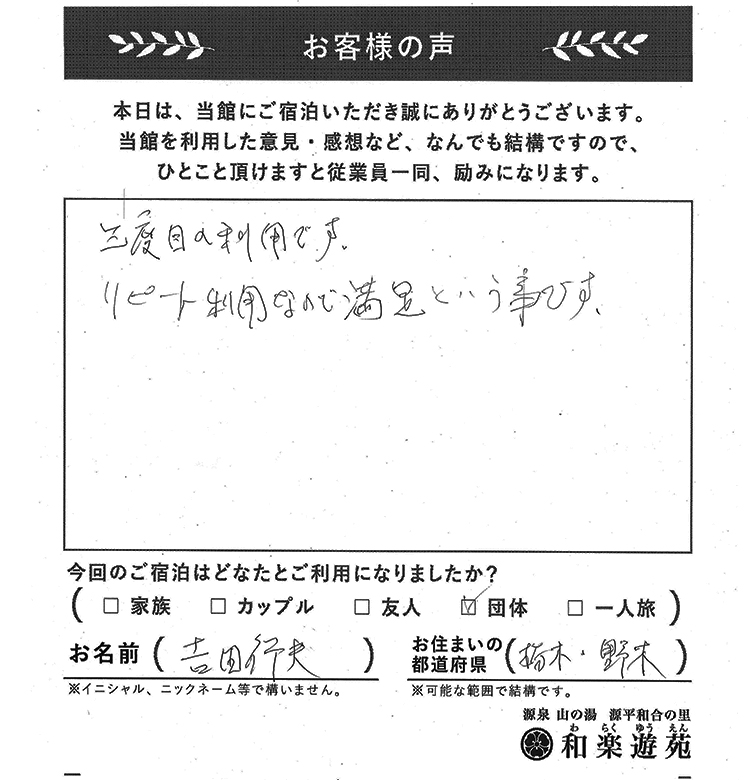 お客様の声
本日は、当館にご宿泊いただき誠にありがとうございます。
当館を利用した意見・感想など、なんでも結構ですので、
ひとこと頂けますと従業員一同、励みになります。
三度目の利用です。
リピート利用なので満足という事です。
今回のご宿泊はどなたとご利用になりましたか？
( □ 家族 □ カップル □ 友人 ☑ 団体 □ 一人旅 )
お名前 ( 吉田行夫 )
※イニシャル、ニックネーム等で構いません。
お住まいの都道府県 ( 栃木・野木 )
※可能な範囲で結構です。
源泉 山の湯 源平和合の里
わ らく ゆう えん
和楽遊苑